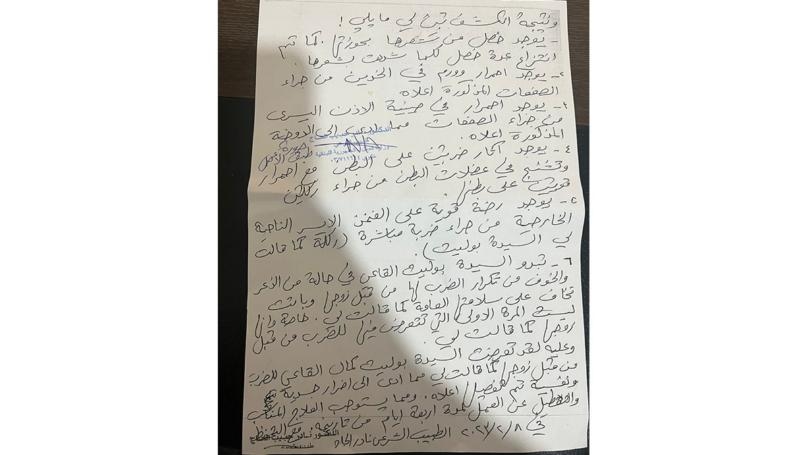 ونتيجة الكشف تبين لي ما يلي :
- يوجد خصل من شعرها بحوزتها كما تم
انتزاع عدة خصل كلما شدت بشعرها .
٢- يوجد احمرار وورم في الخدين من جراء
الصفعات المذكورة اعلاه
٣- يوجد احمرار في صينية الاذن اليسرى
من جراء الصفعات مما ادى الى الدوخة
المذكورة اعلاه .
صورة
طبق الأصل
٤- يوجد آثار ضربتين على البطن مع احمرار
وتشنج في عضلات البطن من جراء ركلتين
قويتين على بطنها .
٥- يوجد رضة قوية على الفخذ الايسر الناحية
الخارجية من جراء ضربة مباشرة (ركلة كما قالت
لي السيدة بوليت ) .
٦- تبدو السيدة بوليت القاعي في حالة من الذعر
والخوف من تكرار الضرب لها من قبل زوجها وباتت
تخاف على سلامتها العامة كما قالت لي . خاصة وانها
ليست المرة الاولى التي تتعرض فيها للضرب من قبل
زوجها كما قالت لي .
وعليه لقد تعرضت السيدة بوليت كمال القاعي للضرب
من قبل زوجها كما قالت لي مما ادى الى اضرار جسدية
ونفسية تم تفصيلها اعلاه . ومما يستوجب العلاج المناسب
والتعطيل عن العمل لمدة اربعة ايام من تاريخه . مع التحفظ
في ٢٠٢٣/٢/٨ الطبيب الشرعي نادر الحاج